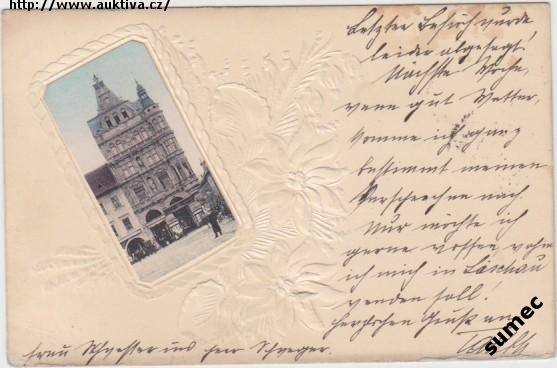 http://www.auktiva.cz/
Letzter Besuch wurde
leider abgesagt!
Nächste Woche,
wenn gut Wetter,
komme ich ganz
bestimmt meinen
Versprechen nach.
Nur möchte ich
gerne wissen, wohin
ich mich in Löschau
wenden soll!
Herzlichen Gruß an
Frau Schwester und Herr Schwager.
sumec